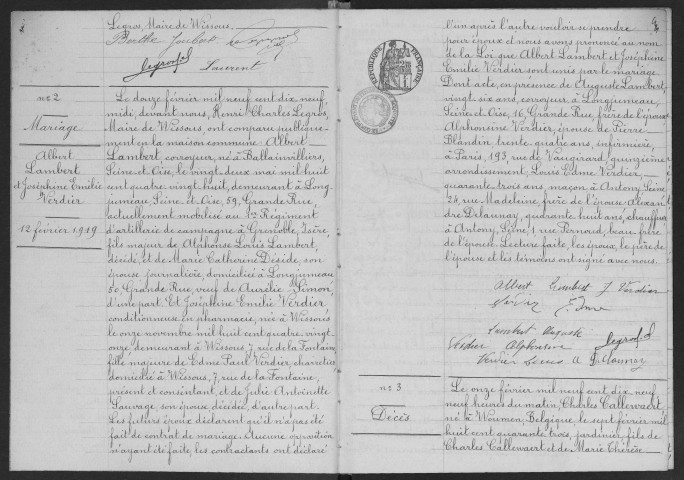 Legros, Maire de Wissous.
Berthe Joubert
Legros
Laurent
n° 2
Mariage
Albert
Lambert
et Joséphine Emilie
Verdier
12 février 1919
Le douze février mil neuf cent dix neuf,
midi, devant nous, Henri Charles Legros,
Maire de Wissous, ont comparu publique-
ment en la maison commune : Albert
Lambert corroyeur, né à Ballainvilliers,
Seine-et-Oise, le vingt deux mai mil huit
cent quatre vingt huit, demeurant à Long-
jumeau, Seine-et-Oise, 59, Grande Rue,
actuellement mobilisé au 1er Régiment
d'artillerie de campagne à Grenoble, Isère,
fils majeur de Alphonse Louis Lambert,
décédé, et de Marie Catherine Déside, son
épouse journalière, domiciliée à Longjumeau
50 Grande Rue, veuf de Aurélie Simon,
d'une part. Et Joséphine Emilie Verdier
conditionneuse en pharmacie, née à Wissous
le onze novembre mil huit cent quatre vingt-
onze demeurant à Wissous 7, rue de la Fontaine
fille majeure de Edme Paul Verdier, charretier
domicilié à Wissous, 7, rue de la Fontaine,
présent et consentant, et de Julie Antoinette
Sauvage, son épouse décédée, d'autre part.
Les futurs époux déclarent qu'il n'a pas été
fait de contrat de mariage. Aucune opposition
n'ayant été faite, les contractants ont déclaré
l'un après l'autre vouloir se prendre
pour époux et nous avons prononcé au nom
de la Loi que Albert Lambert et Joséphine
Emilie Verdier sont unis par le mariage.
Dont acte, en présence de Auguste Lambert,
vingt six ans, corroyeur, à Longjumeau,
Seine et Oise, 16, Grande Rue, frère de l'époux
Alphonsine Verdier, épouse de Pierre
Blandin, trente quatre ans, infirmière,
à Paris, 193, rue de Vaugirard, quinzième
arrondissement, Louis Edme Verdier,
quarante trois ans, maçon à Antony, Seine
24, rue Madeleine, frère de l'épouse Alexan-
dre Delaunay, quarante huit ans, chauffeur
à Antony, Seine, 1 rue Pernord, beau frère
de l'épouse. Lecture faite, les époux, le père de
l'épouse et les témoins ont signé avec nous.
Albert Lambert J Verdier
Lambert Auguste
Verdier Alphonsine Legros
Verdier Louis A Delaunay
n° 3
Décès
Le onze février mil neuf cent dix neuf,
neuf heures du matin, Charles Callewaert
né à Woumen, Belgique, le sept février mil
huit cent quarante trois, jardinier, fils de
Charles Callewaert et de Marie Thérèse